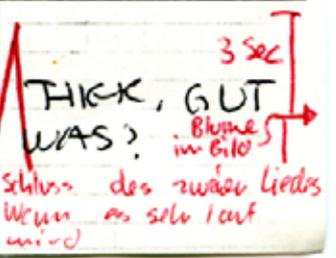 3 Sec
THICK, GUT
WAS?
Blume
im Bild
Schluss des zwaier Liedes
Wenn es sehr laut
wird